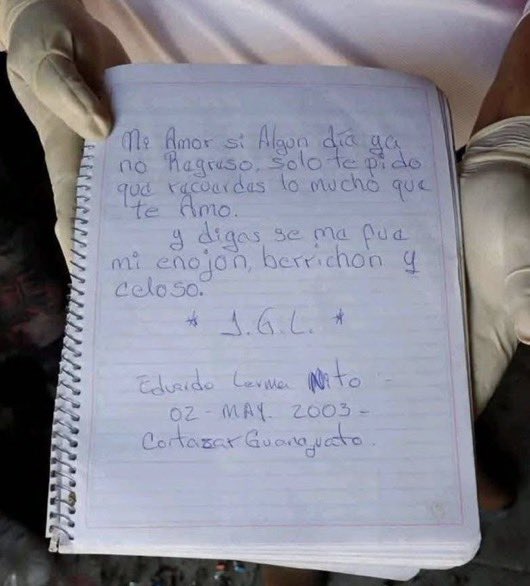 Mi Amor si Algun día ya
no Ragraso, solo te pido
que racuardas lo mucho que
te Amo.
y digas se ma fue
mi enojon, berrichon y
celoso.
* J.G.L. *
Eduardo Lerma Nito
02 - MAY - 2003 -
Cortazar Guanajuato.